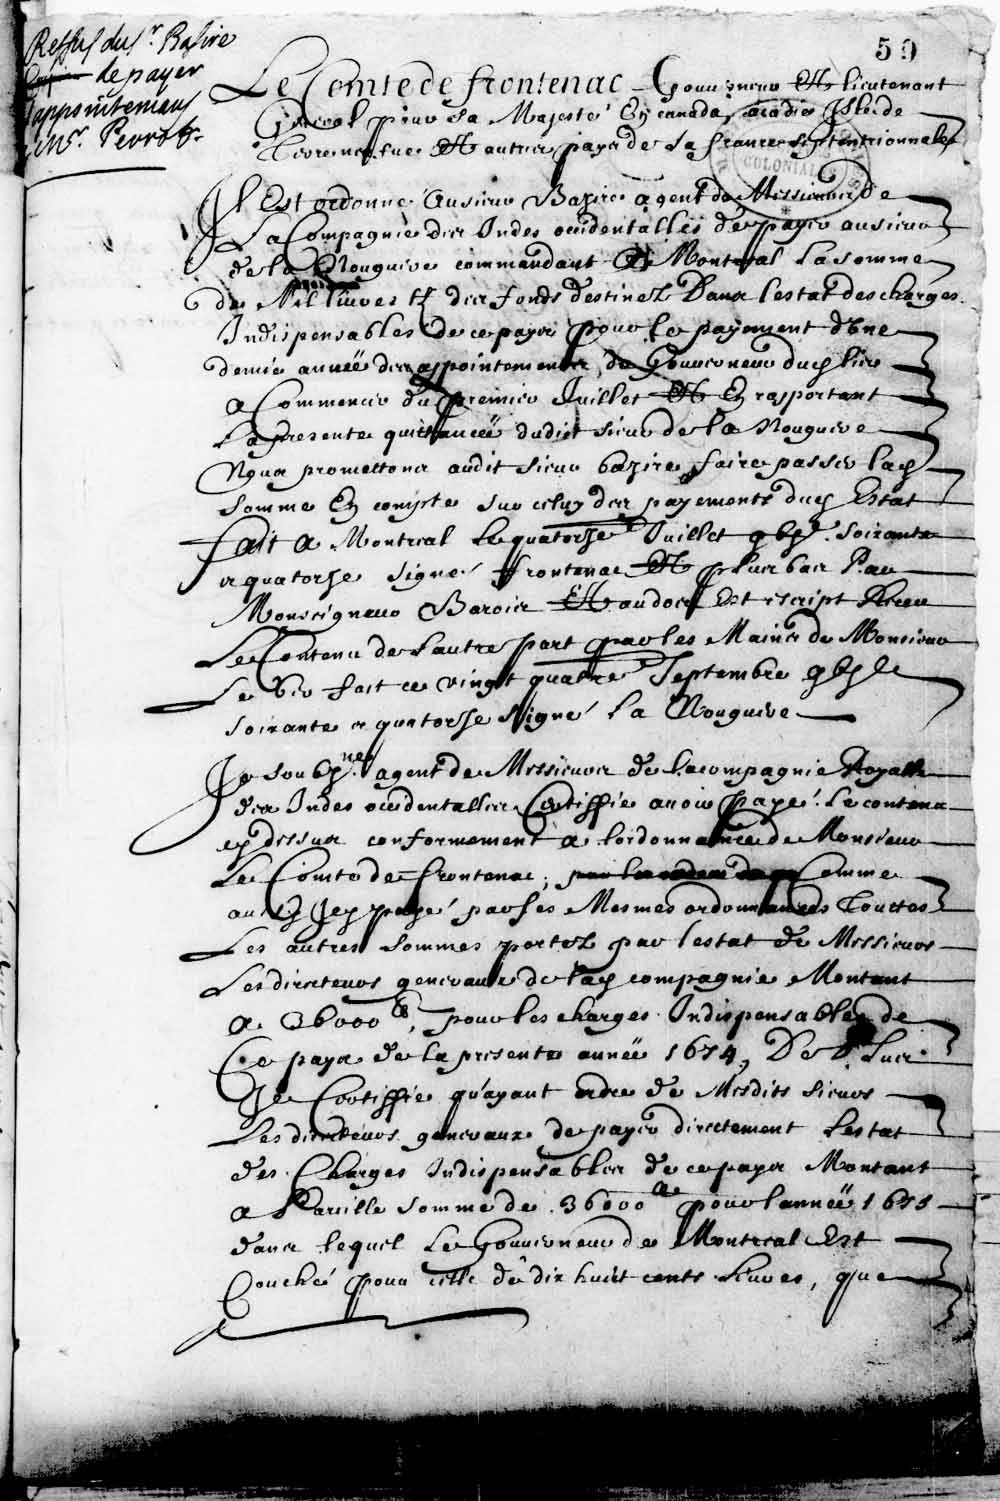 Reffus du sr. Basire
de payer
appointemens
Mr. Perrot.
59
Le Comte de frontenac Gouverneur Et lieutenant
General pour sa Majesté En canada, acadie Isle de
Terre neufue Et autres pays de la france septentrionnale
COLONIALES
Il Est ordonné Au sieur Bazire agent de Messieurs de
La Compagnie des Indes occidentalles de payer au sieur
de la Nouguere commandant A Montreal La somme
de Mil liures tz des fonds destinez Dans lestat des charges
Indispensables de ce pays pour le payement d'Une
demie année des appointements de Gouverneur dud lieu
a Commencer du premier Juillet Et En rapportant
La presente quittancëe dudict sieur de la Nouguere
Nous promettons audit sieur bazire faire passer lad
somme En compte sur celuy des payements dud Estat
fait a Montreal Le quatorse Juillet gbic. soixante
et quatorse signé frontenac Et plus bas Par
Monseigneur Barois Et au dos Est escript Receu
Le Contenu de l'autre part par les Mains de Monsieur
Le ber fait ce vingt quatre Septembre gbic
soixante et quatorse signé La Nouguere
Je soubsne. agent de Messieurs de la compagnie Royalle
des Indes occidentalles Certiffie auoir payé le contenu
cy dessus conformement a lordonnance de Monsieur
Le Comte de frontenac, Comme
aussy Jey payé par ses Mesmes ordonnances Touttes
Les autres sommes portez par lestat de Messieurs
Les directeurs generaux de lad compagnie Montant
a 36000 tt, pour les charges Indispensables de
Ce pays de la presente année 1674, De Plus
Je Certiffie qu'ayant ordre de Mesdits sieurs
Les directeurs generaux de payer directement lestat
des Charges Indispensables de ce pays Montant
a Pareille somme de 36000 tt pour l'année 1675
dans lequel Le Gouverneur de Montreal Est
Couché pour celle de dix huict cents liures, que